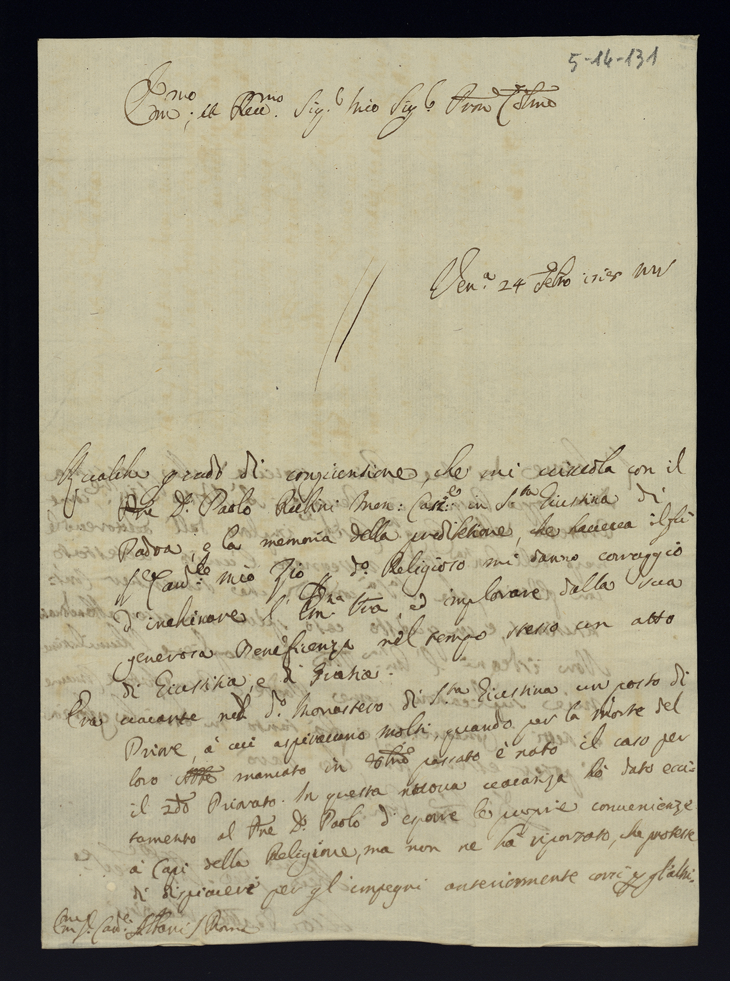 5-14-131
Em.mo, et Rev.mo Sig.r mio Sig.r Pron Col.mo
Ven.a 24 Febro
Qualche grado di congiuntione, che mi uincola con il
Pre D. Paolo Ruzini Mon: Cas.o in S.ta Giustina di
Padoa, e la memoria della predilettione, che haueua il fù
S.r Card.le mio Zio p d.o Religioso mi danno corraggio
d'inchinare l'Em.na Vra, ed implorare dalla sua
generosa Beneficenza nel tempo stesso un atto
di Giustitia, e di Gratia.
Era uacante nel d.o Monastero di S.ta Giustina un posto di
Priore, à cui aspirauano molti, quando per la morte del
loro Abbe mancato in passato è nato il caso per
il 2do Priorato. In questa nuoua uacanza hà dato ecci-
tamento al Pre D. Paolo d'esporre le proprie conuenienze
à Capi della Religione, ma non ne hà riportato, che proteste
di dispiacere per gl'impegni anteriormente corsi p gl'altri.
Em.mo S.r Card. Albani / Roma